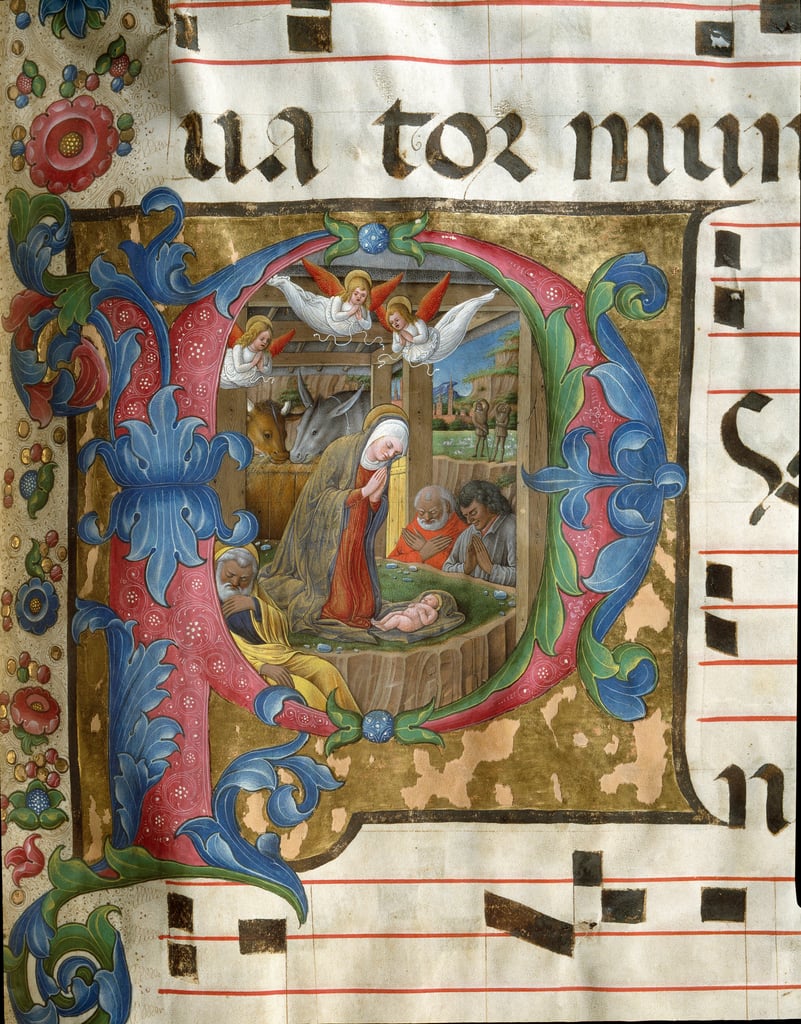 ua tor mun
P n